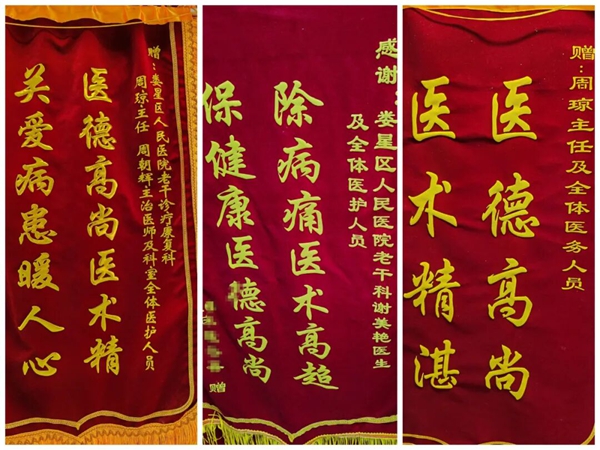 赠：娄星区人民医院老干诊疗康复科
周琼主任 周朝辉主治医师及科室全体医护人员
医德高尚医术精
关爱病患暖人心
感谢：娄星区人民医院老干科谢美艳医生
及全体医护人员
除病痛医术高超
保健康医德高尚
赠
赠：周琼主任及全体医务人员
医德高尚
医术精湛